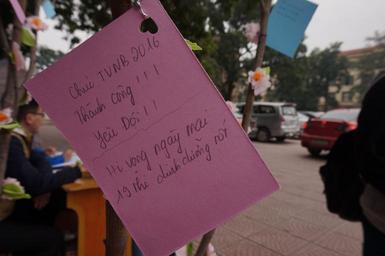 Chúc TVNB 2016
Thành công!!!
Yêu Đời!!
Hi vọng ngày mai
19 thi dinh dưỡng tốt